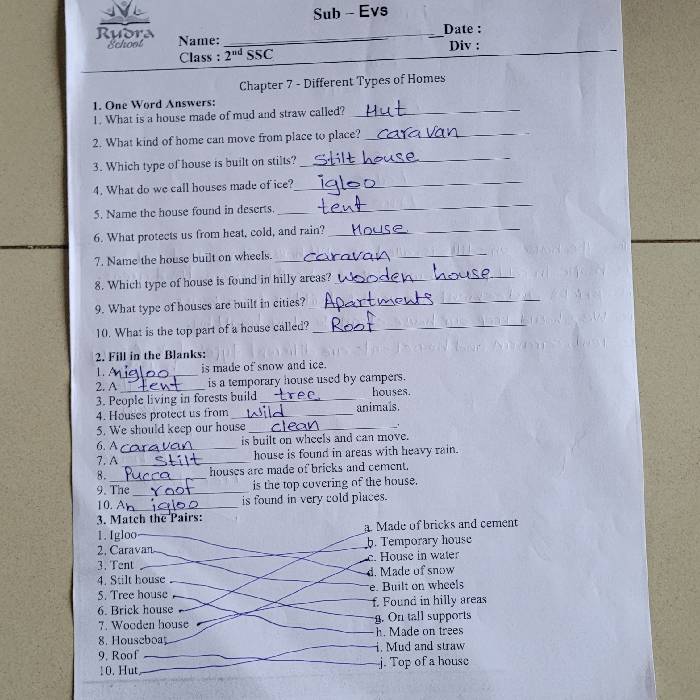 Rudra
School
Sub - Evs
Name:
Date :
Class : 2nd SSC
Div :
Chapter 7 - Different Types of Homes
1. One Word Answers:
1. What is a house made of mud and straw called? Hut
2. What kind of home can move from place to place? caravan
3. Which type of house is built on stilts? Stilt house
4. What do we call houses made of ice? igloo
5. Name the house found in deserts. tent
6. What protects us from heat, cold, and rain? House
7. Name the house built on wheels. caravan
8. Which type of house is found in hilly areas? Wooden house
9. What type of houses are built in cities? Apartments
10. What is the top part of a house called? Roof
2. Fill in the Blanks:
1. An igloo is made of snow and ice.
2. A tent is a temporary house used by campers.
3. People living in forests build tree houses.
4. Houses protect us from wild animals.
5. We should keep our house clean.
6. A caravan is built on wheels and can move.
7. A Stilt house is found in areas with heavy rain.
8. Pucca houses are made of bricks and cement.
9. The roof is the top covering of the house.
10. An igloo is found in very cold places.
3. Match the Pairs:
1. Igloo a. Made of bricks and cement
2. Caravan b. Temporary house
3. Tent c. House in water
4. Stilt house d. Made of snow
5. Tree house e. Built on wheels
6. Brick house f. Found in hilly areas
7. Wooden house g. On tall supports
8. Houseboat h. Made on trees
9. Roof i. Mud and straw
10. Hut j. Top of a house